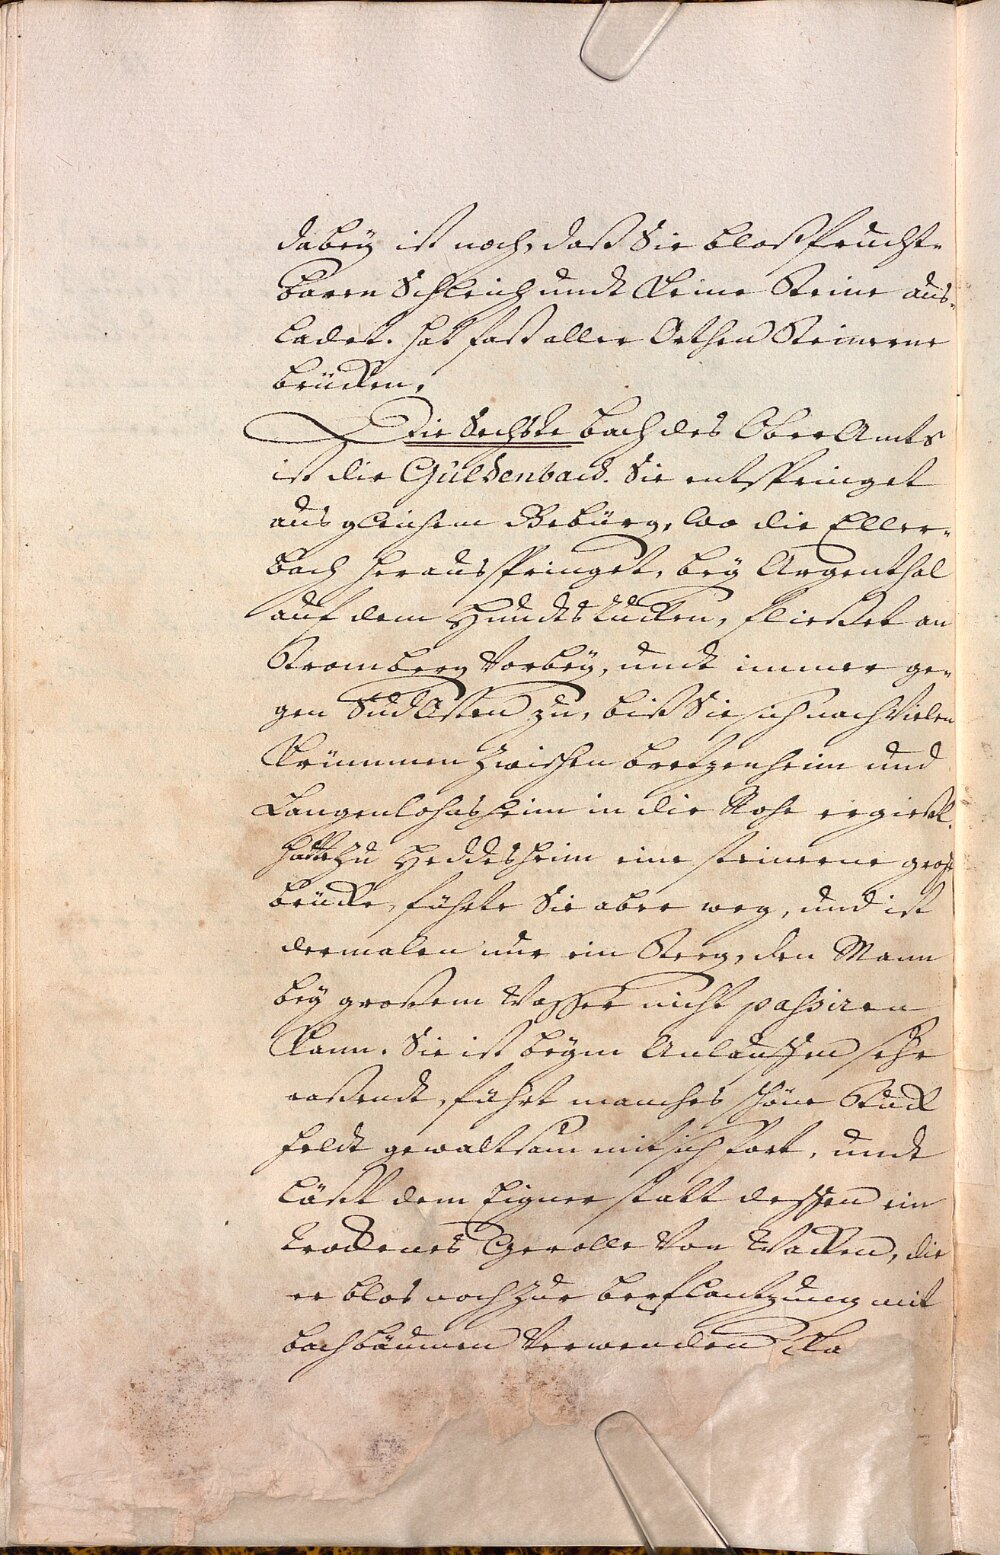 dabeÿ ist noch, daß Sie bloß frucht=
baren Schleich undt keine Steine aus=
ladet. hat fast aller Orthen Steinerne
brücken.
Die Sechste bach des Ober Amts
ist die Guldenbach. Sie entspringet
aus gleichem Gebürg, wo die Eller=
bach herausspringet, beÿ Argenthal
auf dem Hundtsrucken, fließet an
Stromberg Vorbeÿ, undt immer ge=
gen SüdOsten zu, biß Sie sich nach Vielen
Krümmen zwischen bretzenheim und
Langenlohnsheim in die Nohe ergießt.
hatte zu Heddesheim eine steinerne große
brücke, führte Sie aber weg, und ist
dermalen nur ein Steeg, den Mann
beÿ großem Wasser nicht passiren
Kann. Sie ist beÿm Anlauffen sehr
raßendt, führt manches schöne Stück
feldt gewaltsam mit sich fort, undt
läßt dem Eigner statt dessen ein
trockenes Gerölle Von Wacken, die
er blos noch zur bepflantzung mit
bachbäumen Verwenden Ka